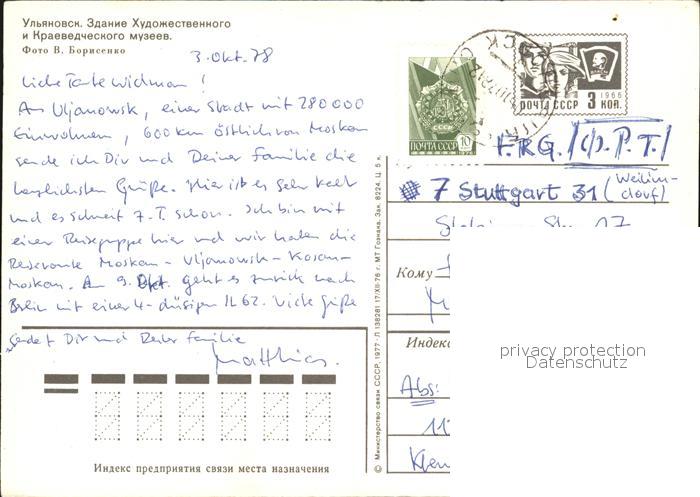 Ульяновск. Здание Художественного
и Краеведческого музеев.
Фото В. Борисенко
3. Okt. 78
Liebe Tante Widman!
Aus Uljanowsk, einer Stadt mit 280 000
Einwohnern, 600 km östlich von Moskau
sende ich Dir und Deiner Familie die
herzlichsten Grüße. Hier ist es sehr kalt
und es schneit z. T. schon. Ich bin mit
einer Reisegruppe hier und wir haben die
Reiseroute Moskau - Uljanowsk - Kasan -
Moskau. Am 9. Okt. geht es zurück nach
Berlin mit einer 4-düsigen IL 62. Viele Grüße
sendet Dir und Deiner Familie
Matthias.
ПОЧТА СССР 10
1976
1966
ПОЧТА СССР 3 КОП.
F.R.G. /Ф.Р.Т./
7 Stuttgart 31 (Weilim-
dorf)
17
Кому
Индекс
Abs:
11
privacy protection
Datenschutz
© Министерство связи СССР, 1977 · Л 138281 17/XII-76 г. МТ Гознака. Зак. 8224. Ц. 5 к.
Индекс предприятия связи места назначения